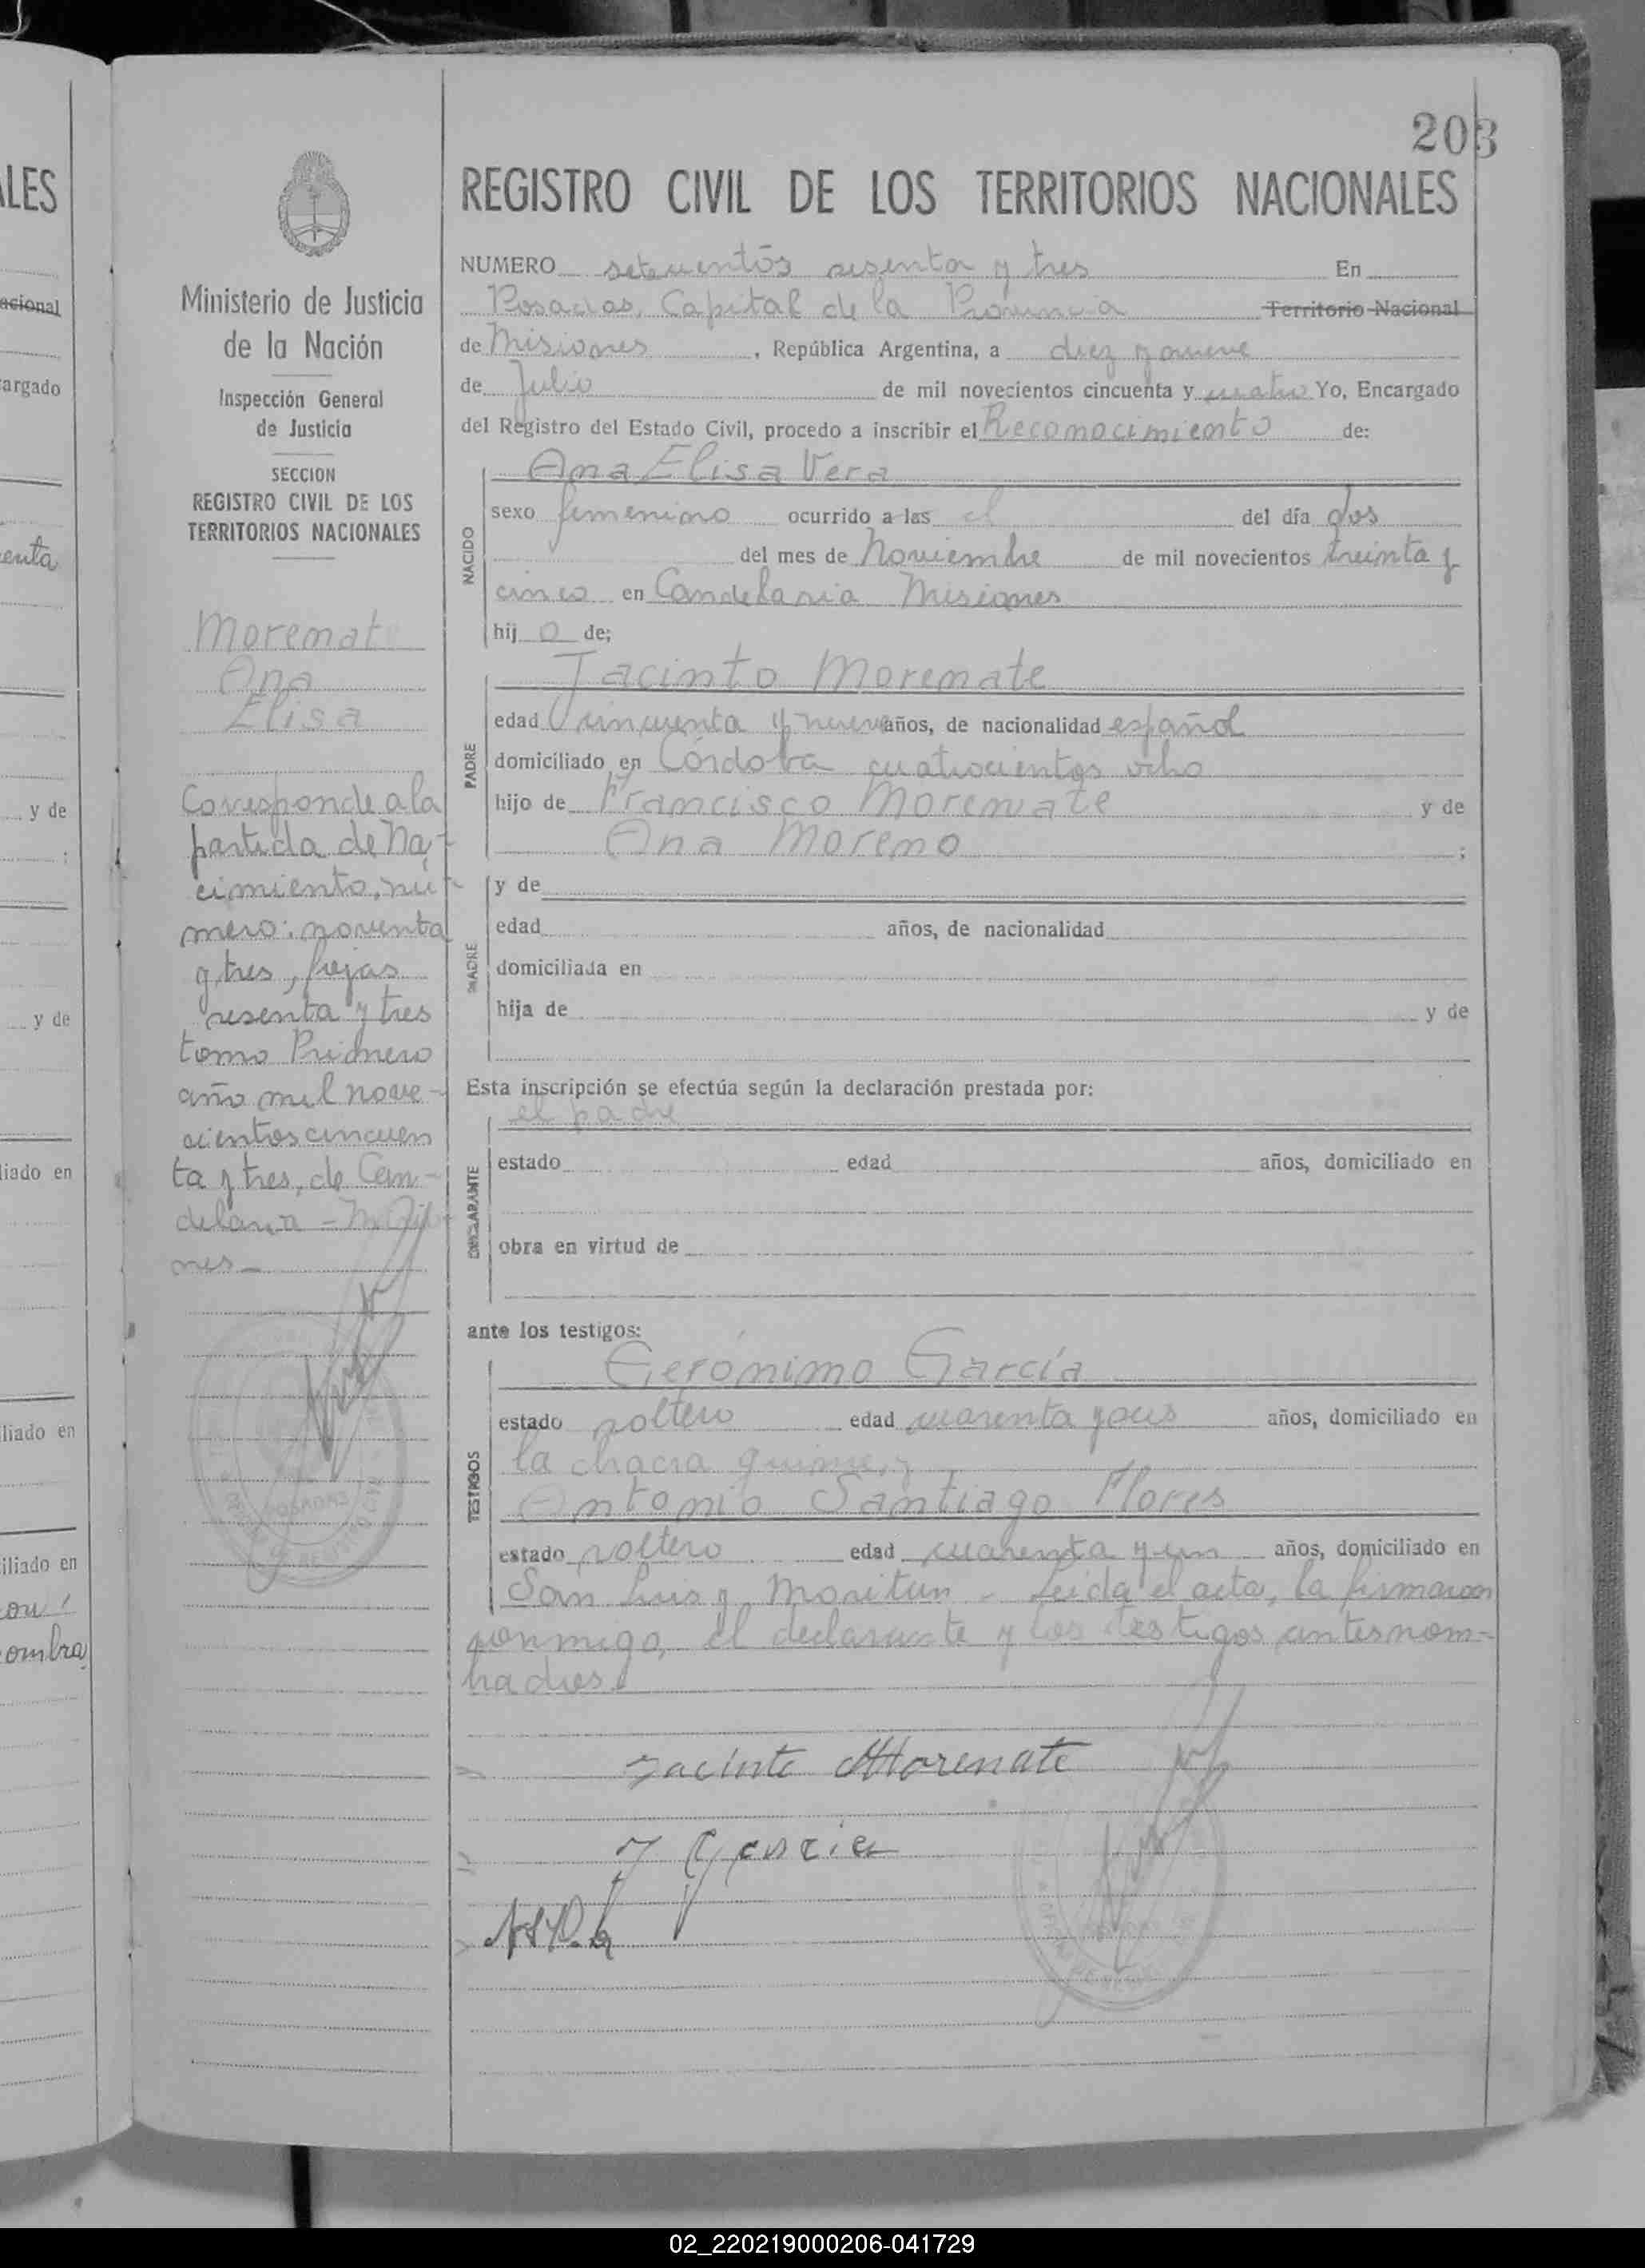 203
ALES
acional
argado
enta
y de
y de
liado en
liado en
iliado en
ombra
Ministerio de Justicia
de la Nación
Inspección General
de Justicia
SECCION
REGISTRO CIVIL DE LOS
TERRITORIOS NACIONALES
Morenate
Ana
Elisa
Corresponde a la
partida de Na-
cimiento, nú-
mero: noventa
y tres, fojas
sesenta y tres
tomo Primero
año mil nove-
cientos cincuen
ta y tres, de Can-
delaria - Misio
nes -
REGISTRO CIVIL DE LOS TERRITORIOS NACIONALES
NUMERO setecientos sesenta y tres En
Posadas, Capital de la Provincia Territorio Nacional
de Misiones, República Argentina, a diez y nueve
de Julio de mil novecientos cincuenta y cuatro Yo, Encargado
del Registro del Estado Civil, procedo a inscribir el Reconocimiento de:
Ana Elisa Vera
NACIDO
sexo femenino ocurrido a las el del día dos
del mes de Noviembre de mil novecientos treinta y
cinco en Candelaria Misiones
hij a de;
PADRE
Jacinto Morenate
edad cincuenta y nueve años, de nacionalidad español
domiciliado en Córdoba cuatrocientos ocho
hijo de Francisco Morenate y de
Ana Moreno ;
MADRE
y de
edad años, de nacionalidad
domiciliada en
hija de y de
Esta inscripción se efectúa según la declaración prestada por:
el padre
DECLARANTE
estado edad años, domiciliado en
obra en virtud de
ante los testigos:
TESTIGOS
Gerónimo García
estado soltero edad cuarenta y años, domiciliado en
la chacra quince, y
Antonio Santiago Flores
estado soltero edad cuarenta y un años, domiciliado en
San Luis y - Leída el acta, la firmaron
conmigo, el declarante y los testigos antes nom-
brados.
Jacinto Morenate
J Garcia
POSADAS
02_220219000206-041729